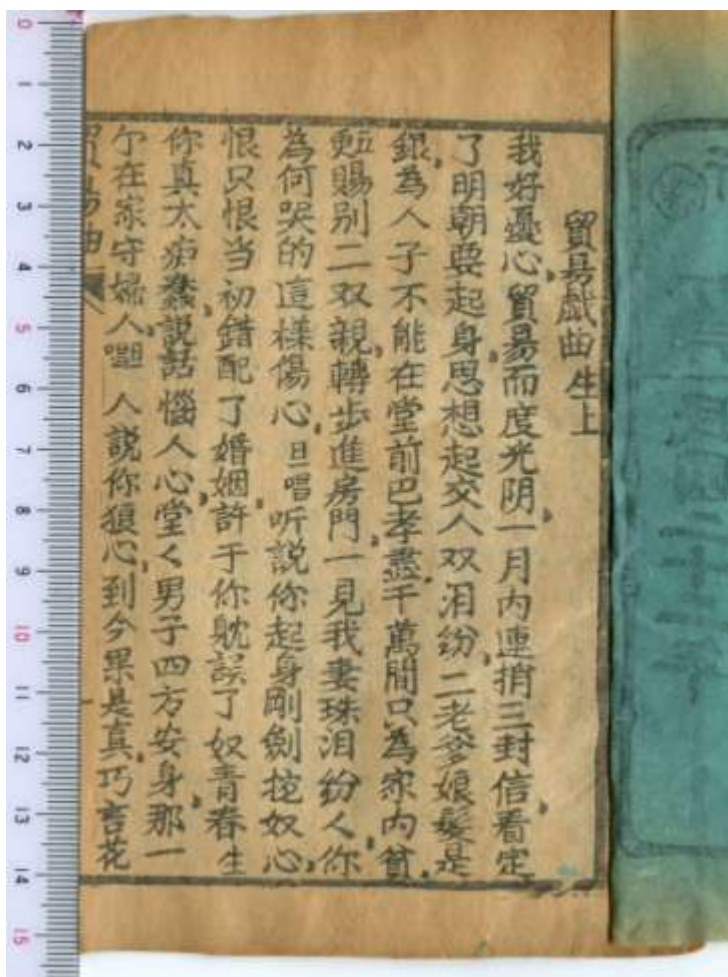 貿易戯曲生上
我好憂心貿易而度光阴一月内連捎三封信看定
了明朝要起身思想起交人双泪纷二老爹娘髮是
銀為人子不能在堂前巴孝盡千萬間只為家内貧
賜别二双親轉步進房門一見我妻珠泪纷々你
為何哭的這樣傷心旦唱听説你起身剛劍挖奴心
恨只恨当初錯配了婚姻許于你躭誤了奴青春生
你真太痴蠢説話惱人心堂々男子四方安身那一
个在家守婦人旦唱人説你狼心到今果是真巧言花
貿易曲